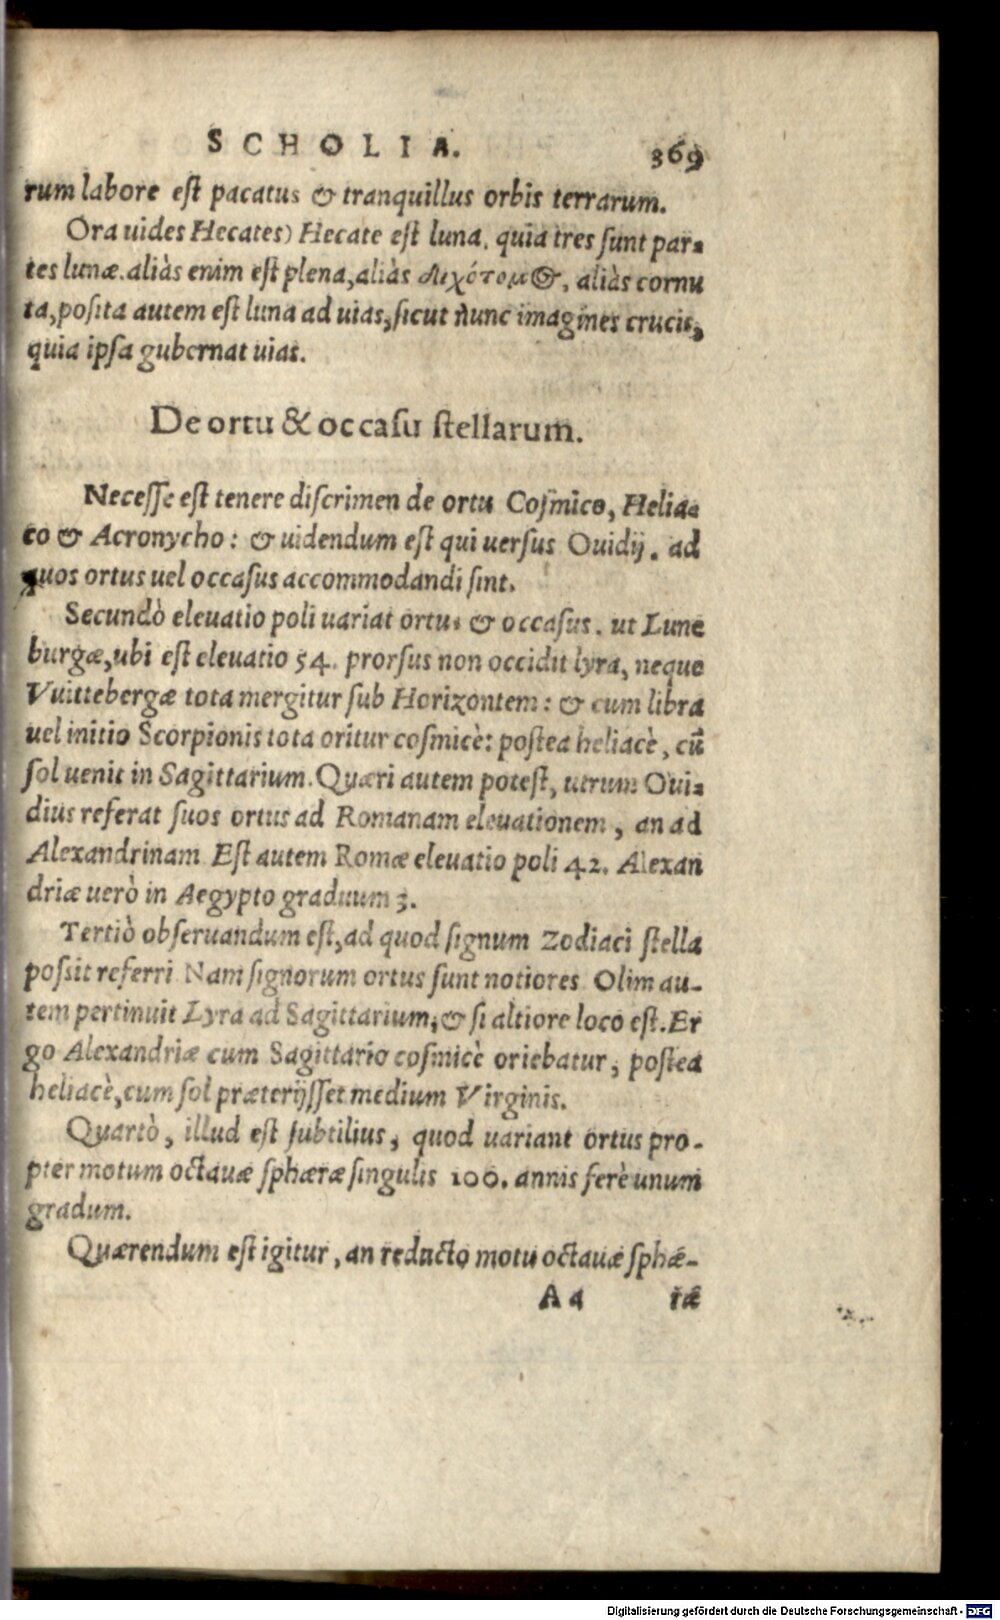 SCHOLIA. 369
rum labore est pacatus & tranquillus orbis terrarum.
Ora uides Hecates) Hecate est luna, quia tres sunt par-
tes lunæ. aliàs enim est plena, aliàs διχότομος, aliàs cornu
ta, posita autem est luna ad uias, sicut nunc imagines crucis,
quia ipsa gubernat uias.
De ortu & occasu stellarum.
Necesse est tenere discrimen de ortu Cosmico, Helia-
co & Acronycho: & uidendum est qui uersus Ouidij. ad
quos ortus uel occasus accommodandi sint.
Secundò eleuatio poli uariat ortus & occasus. ut Lune
burgæ, ubi est eleuatio 54. prorsus non occidit lyra, neque
Vuittebergæ tota mergitur sub Horizontem: & cum libra
uel initio Scorpionis tota oritur cosmicè: postea heliacè, cũ
sol uenit in Sagittarium. Quæri autem potest, utrum Oui-
dius referat suos ortus ad Romanam eleuationem, an ad
Alexandrinam Est autem Romæ eleuatio poli 42. Alexan
driæ uerò in Aegypto graduum 3.
Tertiò obseruandum est, ad quod signum Zodiaci stella
possit referri Nam signorum ortus sunt notiores Olim au-
tem pertinuit Lyra ad Sagittarium, & si altiore loco est. Er
go Alexandriæ cum Sagittario cosmicè oriebatur, postea
heliacè, cum sol præterijsset medium Virginis.
Quartò, illud est subtilius, quod uariant ortus pro-
pter motum octauæ sphæræ singulis 100. annis ferè unum
gradum.
Quærendum est igitur, an reducto motu octauæ sphæ-
A a 4 ræ
Digitalisierung gefördert durch die Deutsche Forschungsgemeinschaft - DFG